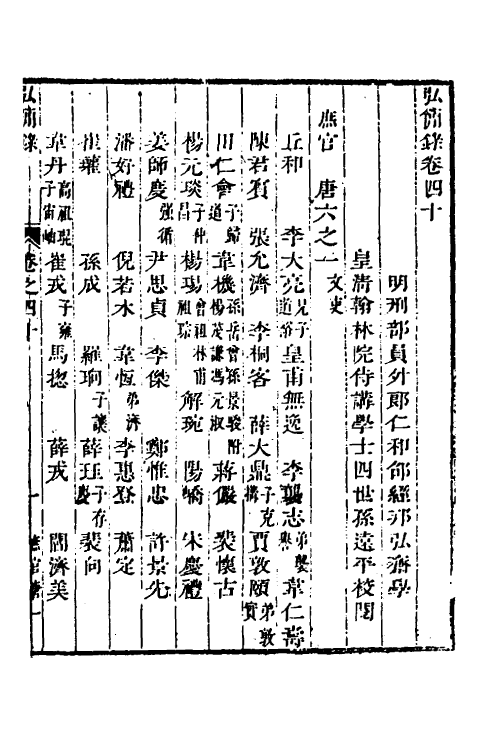 弘簡錄卷四十
明刑部員外郎仁和邵經邦弘齋學
皇淸翰林院侍講學士四世孫遠平校閱
庶官 唐六之一 文吏
丘和 李大亮兄子道裕 皇甫無逸 李襲志弟襲譽 韋仁壽
陳君賓 張允濟 李桐客 薛大鼎子克構 賈敦頤弟敦實
田仁會子歸道 韋機孫岳曾孫景駿附楊茂謙馮元淑 蔣儼 裴懷古
楊元琰子仲昌 楊瑒曾祖林甫祖琮 解琬 陽嶠 宋慶禮
姜師度強循 尹思貞 李傑 鄭惟忠 許景先
潘好禮 倪若水 韋恆弟濟 李惠登 蕭定
崔瓘 孫成 羅珦子讓 薛珏子存慶 裴向
韋丹高祖琨子宙岫 崔戎子雍 馬摠 薛戎 閻濟美
弘簡錄 卷之四十 一